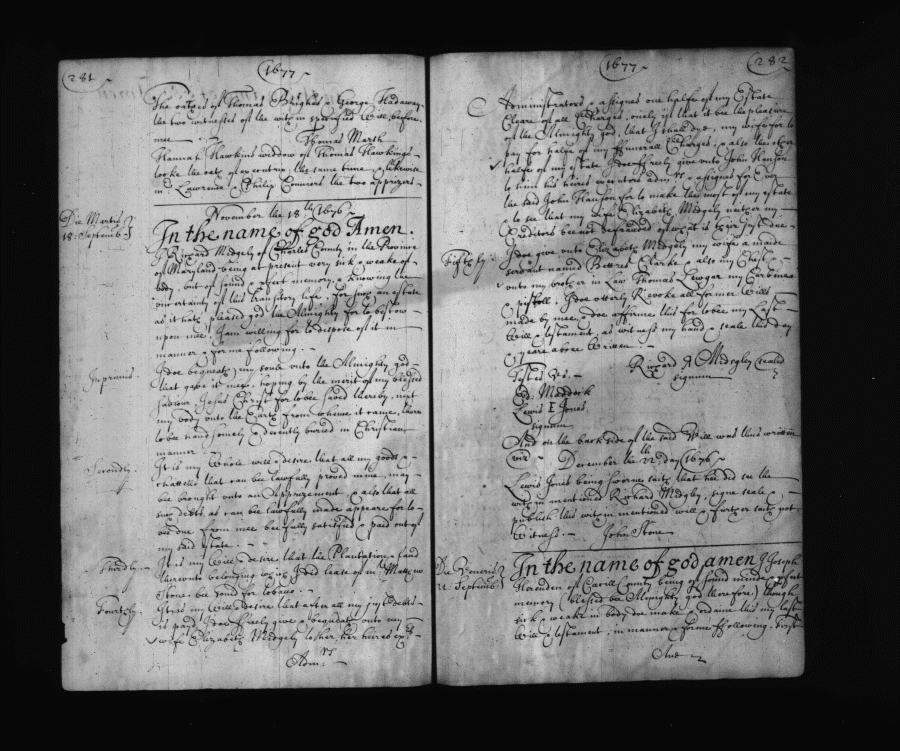 281
1677
The oathes of Thomas Brighus & George Hadaway
the two witnesses of the within specified Will, before
mee
Thomas Marsh
Hannah Hawkins widdow of Thomas Hawkins
tooke the oath of executrix the same time & likewise
Lawrence & Philip Conners the two apprizers
Die Martis
18: Septemb
November the 18th 1676
In the name of god Amen.
I Richard Midgely of Charles County in the Province
of Maryland being at present very sick & weake of
body, but of sound & perfect memory, & knowing the
uncertainty of this transitory life, for such an estate
as it hath pleased god the Almighty for to bestow
upon mee, I am willing for to dispose of it in
manner & forme following
Inprimis.
I doe bequeath my soule unto the Almighty god
that gave it mee, hoping by the merit of my blessed
Saviour Jesus Christ for to bee saved thereby, next
my body unto the Earth from whence it came, there
to bee handsomely & decently buried in Christian
manner
Secondly.
It is my Whole will & desire that all my goods &
chattells that can bee lawfully proved mine, may
bee brought unto an Appraizement, & also that all
such debts as can bee lawfully made appeare for to
bee due from mee bee fully satisfied & paid out of
my said estate.
Thirdly.
It is my Will & desire that the Plantation & land
thereunto belonging which I had lease of Mathew
Stone bee sould for tobaco.
Fourthly.
It is my Will & desire that after all my just debts
is paid, I doe freely give & bequeath unto my
wife Elizabeth Midgely to her, her heires
Admrs
1677
282
Administrators & assignes one halfe of my Estate
Cleare of all Charges, onely if that it bee the pleasure
of the Almighty god, that I shall dye, my wife for to
pay for halfe of my ffunerall Charges, & also the other
halfe of my estate I doe freely give unto John Hanson
to him his heires executors adms & assignes for ever
the said John Hanson for to make the most of my estate
& to see that my wife Elizabeth Midgely nether my
Creditors bee not defrauded of what is their just due
Fifthly
I doe give unto Elizabeth Midgely my wife a maide
servant named Clarke, & also my Chest
unto my brother in Law Thomas my Carbine
& pistoll, I doe utterly Revoke all former Wills
made by mee, & doe affirme this for to bee my Last
Will & testament, as witness my hand & seale this day
& yeare above Written
Richard Midgley sealed
signum
Testes
Maddock
Lewis E Jones
signum
And on the back side of the said Will was thus written
(vizt) December the 22th day 1676
Lewis Jones being sworne saith that hee did see the
within mentioned Richard Midgley, signe seale &
publish this within mentioned will & further saith not
Witness. John Stone
Die Veneris
21: Septemb
In the name of god amen I Joseph
Horenden of County being of sound minde & perfect
memory (blessed bee Almighty god therefore) though
sick & weake in body doe make & ordaine this my last
Will & testament, in manner & forme ffollowing. First